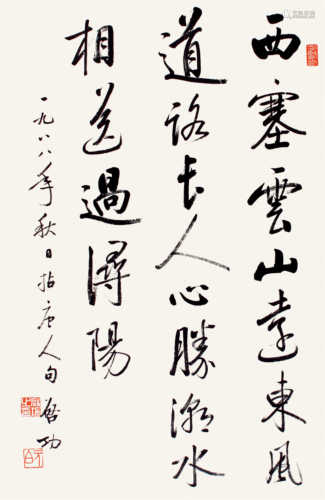 西塞雲山遠東風
道路長人心勝潮水
相送過潯陽
一九八八年秋日拈唐人句啓功